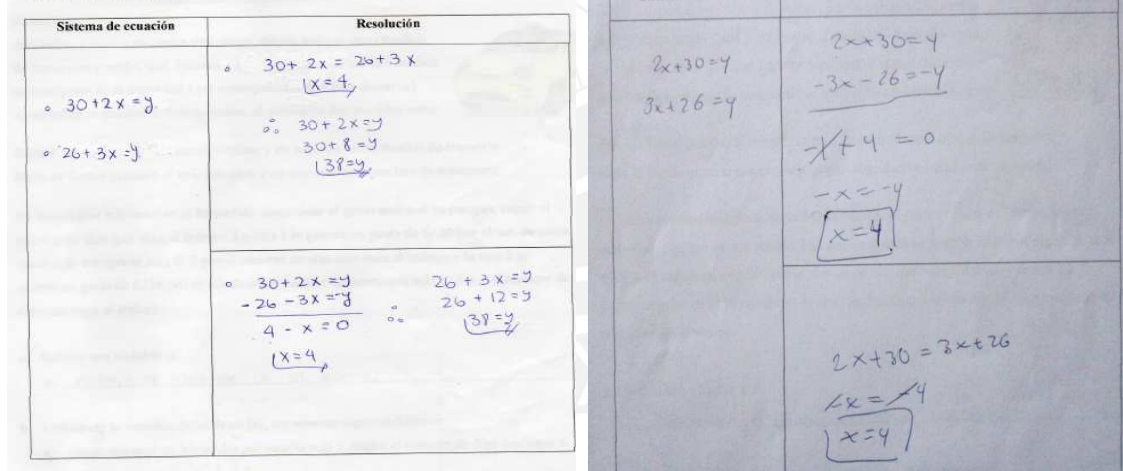 Sistema de ecuación
Resolución
30+2x=y
26+3x=y
30+2x = 26+3x
x=4
∴ 30+2x=y
30+8=y
38=y
30+2x=y
-26-3x=-y
4-x=0
x=4
∴ 26+3x=y
26+12=y
38=y
2x+30=y
3x+26=y
2x+30=y
-3x-26=-y
-x+4=0
-x=-4
x=4
2x+30=3x+26
-x=-4
x=4